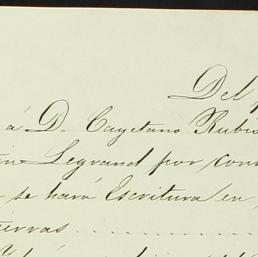 Del
á D. Cayetano Rubio
Legrand por
se hará Escritura en